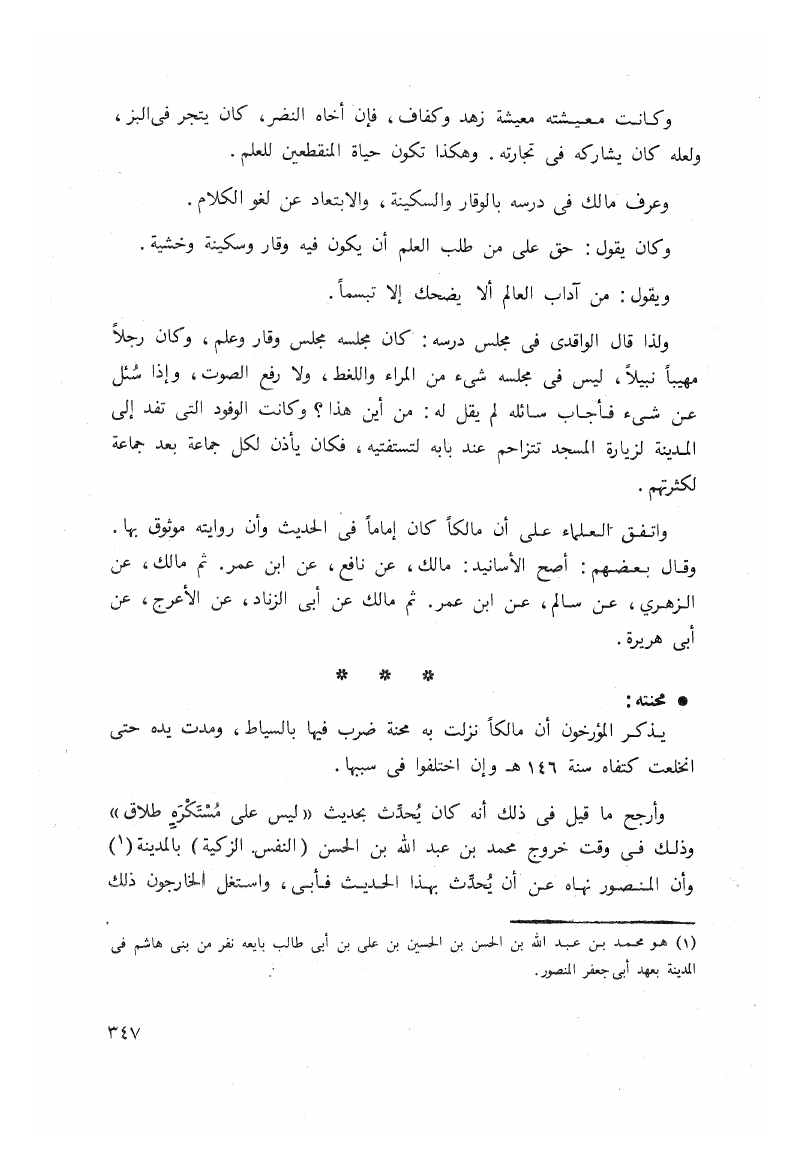 وكانت معيشته معيشة زهد وكفاف، فإن أخاه النضر، كان يتجر فى البز،
ولعله كان يشاركه فى تجارته. وهكذا تكون حياة المنقطعين للعلم.
وعرف مالك فى درسه بالوقار والسكينة، والابتعاد عن لغو الكلام.
وكان يقول: حق على من طلب العلم أن يكون فيه وقار وسكينة وخشية.
ويقول: من آداب العالم ألا يضحك إلا تبسماً.
ولذا قال الواقدى فى مجلس درسه: كان مجلسه مجلس وقار وعلم، وكان رجلاً
مهيباً نبيلاً، ليس فى مجلسه شىء من المراء واللغط، ولا رفع الصوت، وإذا سُئل
عن شىء فأجاب سائله لم يقل له: من أين هذا؟ وكانت الوفود التى تفد إلى
المدينة لزيارة المسجد تتزاحم عند بابه لتستفتيه، فكان يأذن لكل جماعة بعد جماعة
لكثرتهم.
واتفق العلماء على أن مالكاً كان إماماً فى الحديث وأن روايته موثوق بها.
وقال بعضهم: أصح الأسانيد: مالك، عن نافع، عن ابن عمر. ثم مالك، عن
الزهري، عن سالم، عن ابن عمر. ثم مالك عن أبى الزناد، عن الأعرج، عن
أبى هريرة.
* * *
• محنته:
يذكر المؤرخون أن مالكاً نزلت به محنة ضرب فيها بالسياط، ومدت يده حتى
انخلعت كتفاه سنة ١٤٦ هـ وإن اختلفوا فى سببها.
وأرجح ما قيل فى ذلك أنه كان يُحدِّث بحديث «ليس على مُسْتَكْرَهٍ طلاق»
وذلك فى وقت خروج محمد بن عبد الله بن الحسن (النفس الزكية) بالمدينة(١)
وأن المنصور نهاه عن أن يُحدِّث بهذا الحديث فأبى، واستغل الخارجون ذلك
(١) هو محمد بن عبد الله بن الحسن بن الحسين بن على بن أبى طالب بايعه نفر من بنى هاشم فى
المدينة بعهد أبى جعفر المنصور.
٣٤٧